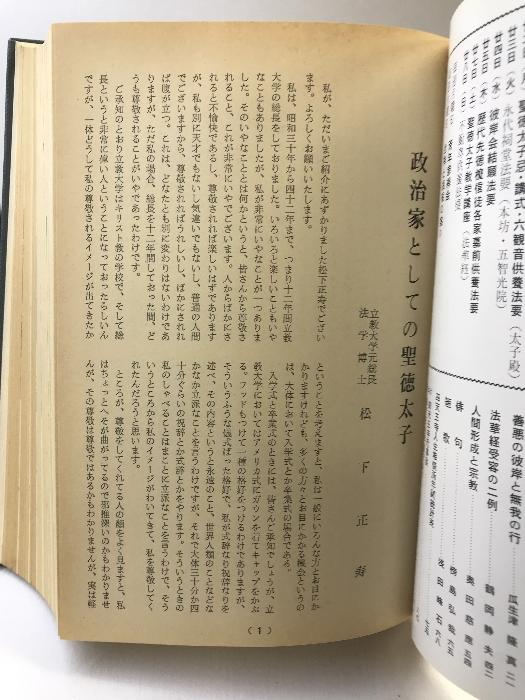 廿三日（火）永代祠堂法要（本坊・五智光院）
廿四日（水）彼岸会結願法要
廿五日（木）歴代先徳視信徒各家墓前供養法要
廿七日（土）聖徳太子教学講座（法和苑）
善悪の彼岸と無我の行
瓜生津 隆真 二
法華経受容の二例
鶴岡静夫 四二
人間形成と宗教
奥田慈應 五四
俳句
椅島弘義 六五
短歌
政治家としての聖徳太子
立教大学元総長
法学博士 松下正寿
私が、ただいまご紹介にあずかりました松下正寿でござい
ます。よろしくお願いいたします。
私は、昭和三十年から四十二年まで、つまり十二年間立教
大学の総長をしておりました。いろいろと楽しいこともいや
なこともありましたが、私が非常にいやなことが一つありま
した。そのいやなこととは何かというと、皆さんから尊敬さ
れること、これが非常にいやでございます。人からばかにさ
れると不愉快であるし、尊敬されれば楽しいはずであります
が、私も別に天才でもないし気違いでもないし、普通の人間
でございますから、尊敬されればうれしいし、ばかにされれ
ば腹が立つ。これは、どなたとも別に変わりはないわけであ
りますが、ただ私の場合、総長を十二年間しておった間、ど
うも尊敬されることがいやであったわけです。
ご承知のとおり立教大学はキリスト教の学校で、そして総
長というと非常に偉い人ということになっておったらしいん
ですが、一体どうして私の尊敬されるイメージが出てきたか
ということを考えますと、私は一般にいろんな方とお目にか
かりますけれども、多くの方々とお目にかかる機会というの
は、大体において入学式とか卒業式の場合である。
入学式と卒業式のときには、皆さんご承知のでしょうが、立
教大学においてはアメリカ式にガウンを着てキャップをかぶ
る。フッドもつけて一種の格好をつけるわけでありますが、
そういうふうな儀式ばった格好で、私が式辞なり祝辞なりを
述べ、その内容というと永遠のこと、世界人類のことなどな
かなか立派なことを言うわけですが、それで大体三十分か四
十分ぐらいの祝辞とか式辞とかをやります。そういうときの
私のしゃべることはまことに立派なことを言うわけで、そう
いうところから私のイメージがわいてきて、そして尊敬をさ
れたんだろうと思います。
ところが、尊敬をしてくれてる人の顔をよく見ますと、私
はちょっとへそが曲がってるので邪推深いのかもわかりませ
んが、その尊敬は尊敬ではあるかもわかりませんが、実は軽
（1）